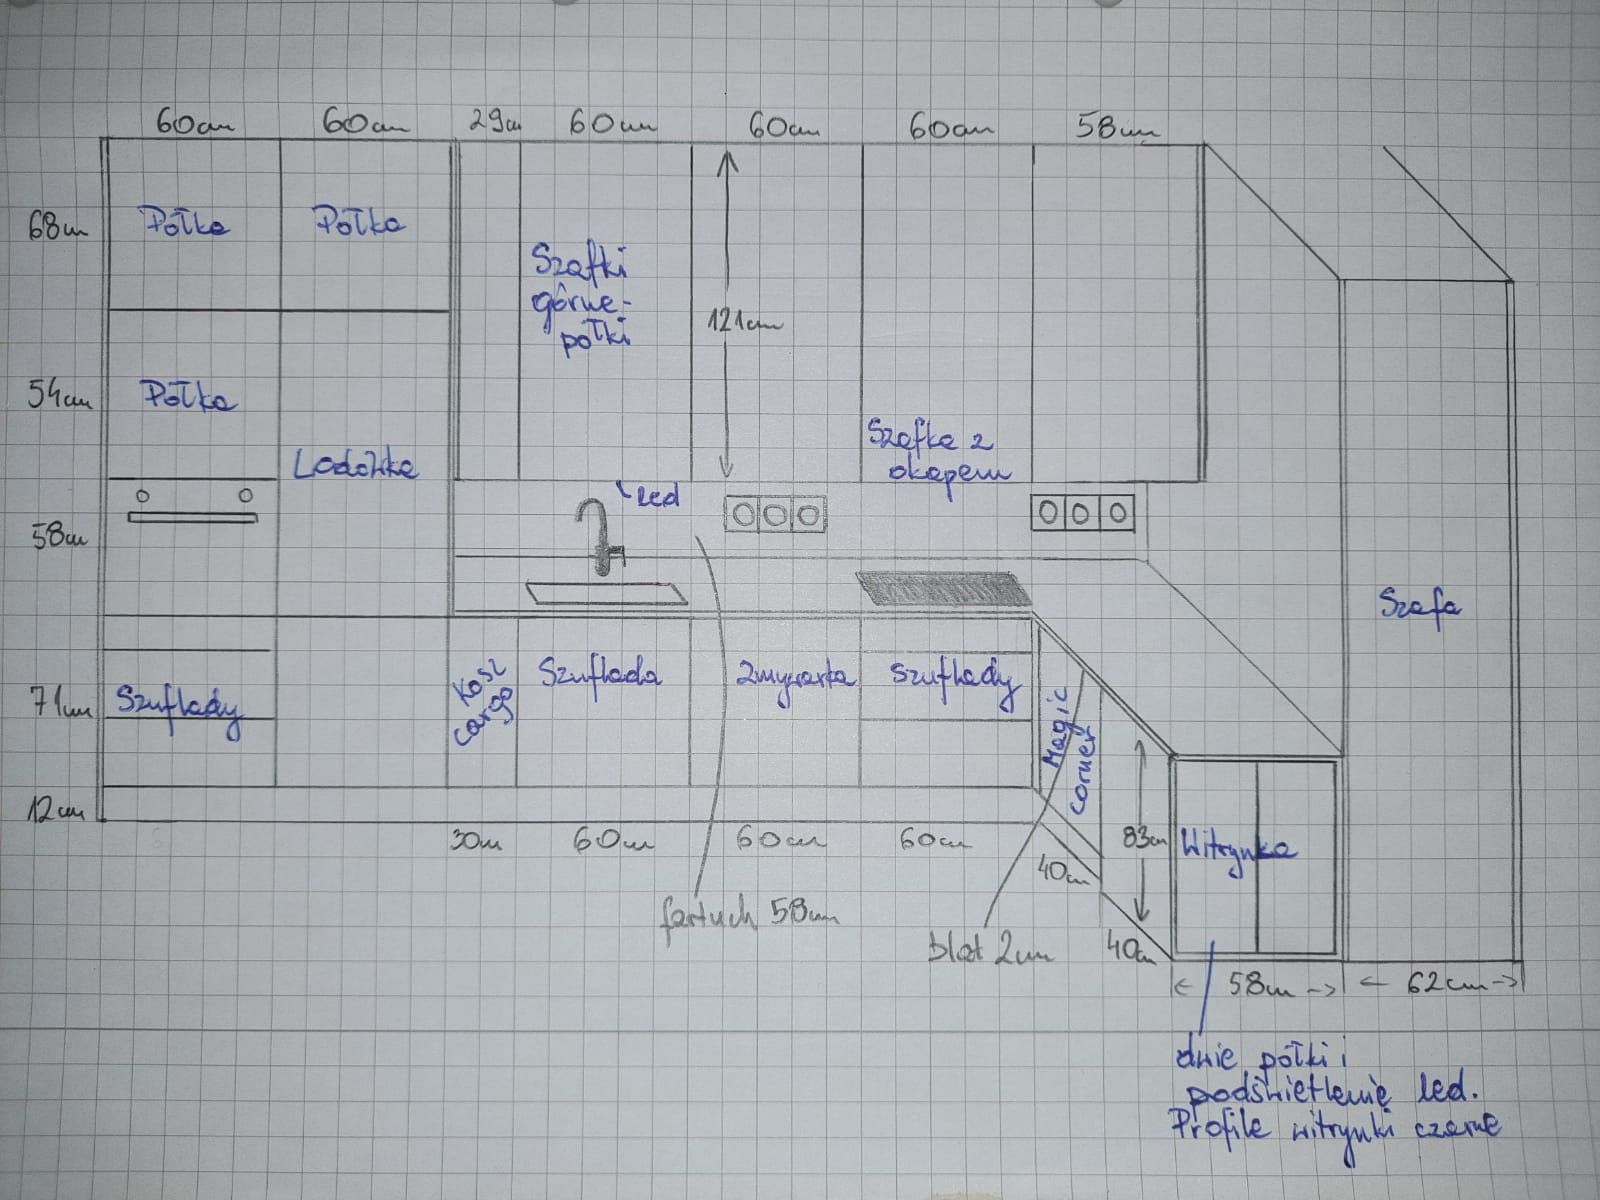 60cm 60cm 29cm 60cm 60cm 60cm 58cm
68cm
Półka Półka
Szafki
górne-
półki
121cm
54cm
Półka
Szafka z
okapem
Lodówka
led
58cm
Szafa
71cm
Szuflady
Kosz
cargo
Szuflada
Zmywarka
Szuflady
Magic
corner
12cm
30cm 60cm 60cm 60cm
83cm
Witrynka
40cm
fartuch 58cm
blat 2cm
40cm
58cm
62cm
dwie półki i
podświetlenie led.
Profile witrynki czarne